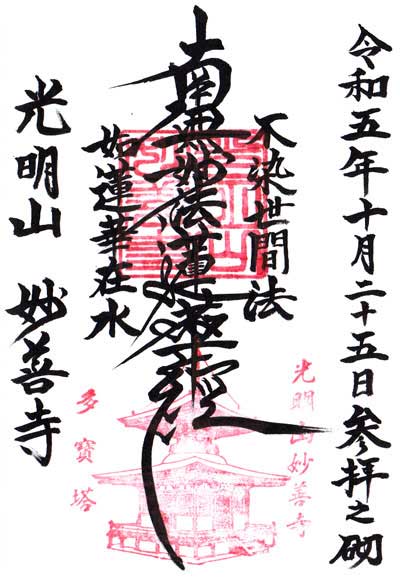 令和五年十月二十五日参拝之砌
不染世間法
南無妙法蓮華経
如蓮華在水
光明山 妙善寺
光明山妙善寺
多寳塔